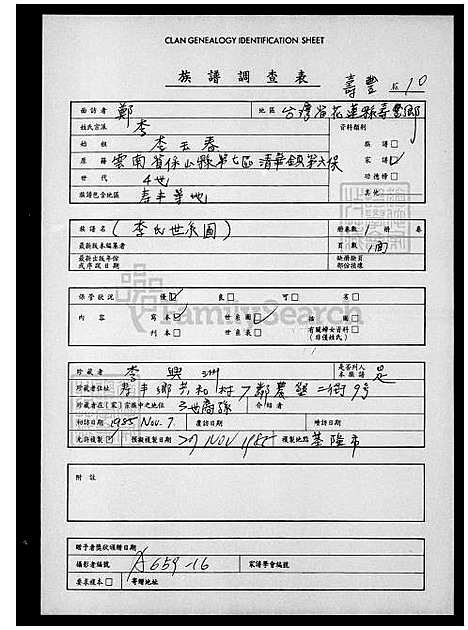 CLAN GENEALOGY IDENTIFICATION SHEET
族譜調查表 壽豐 10
面訪者 鄭 地區 台灣省花蓮縣壽豐鄉
姓氏宗派 李 資料類別
始祖 李玉春 族譜□
原籍 雲南省 山縣第七區清華鎮第六保 家譜☑
世代 4世 功德榜□
族譜包含地區 壽丰等地 其他
族譜名 (李氏世系圖) 冊卷數 1 冊 卷
最新版本編纂者 頁數 1面
最新出版年份 缺冊缺頁
或序跋日期 部份描述
保管狀況 優☑ 良□ 可□ 劣□
內容 寫本☑ 世系圖☑ 插圖□
刊本□ 世系表□ 有關婦女資料□
(非僅姓氏)
FamilySearch
珍藏者 李興洲 是否列入本族譜 是
珍藏者住址 壽丰鄉共和村7鄰農墾二街9号
珍藏者在(家)宗族中之地位 三世裔孫 介紹者
初訪日期 1985 Nov. 7 覆訪日期 結訪日期
允許複製☑ 擬複製日期 27 NOV 1985 複製地點 基隆市
附註
贈予者獎狀頒贈日期
攝影者編號 A659-16 家譜學會編號
要求複本□ 寄贈地址